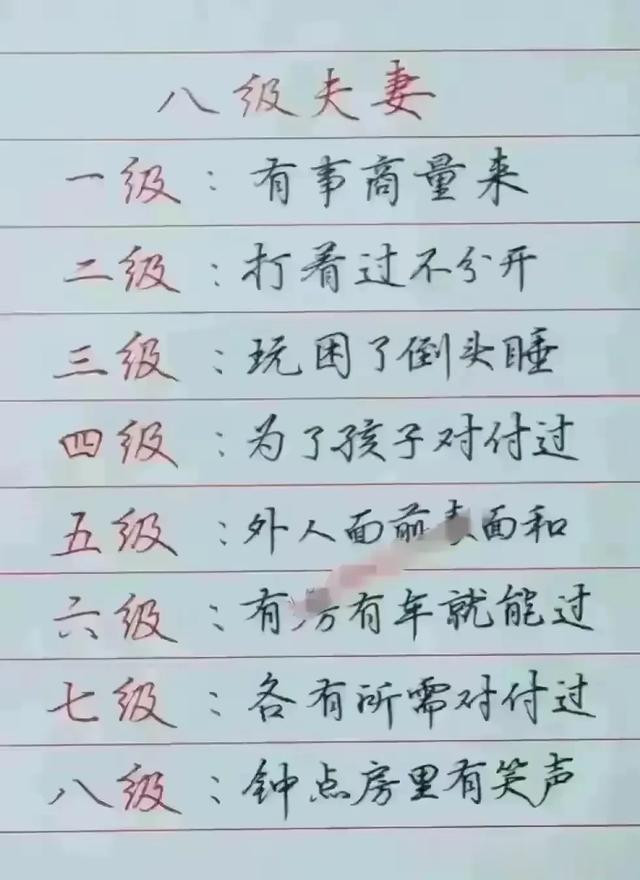 八级夫妻
一级：有事商量来
二级：打着过不分开
三级：玩困了倒头睡
四级：为了孩子对付过
五级：外人面前表面和
六级：有房有车就能过
七级：各有所需对付过
八级：钟点房里有笑声